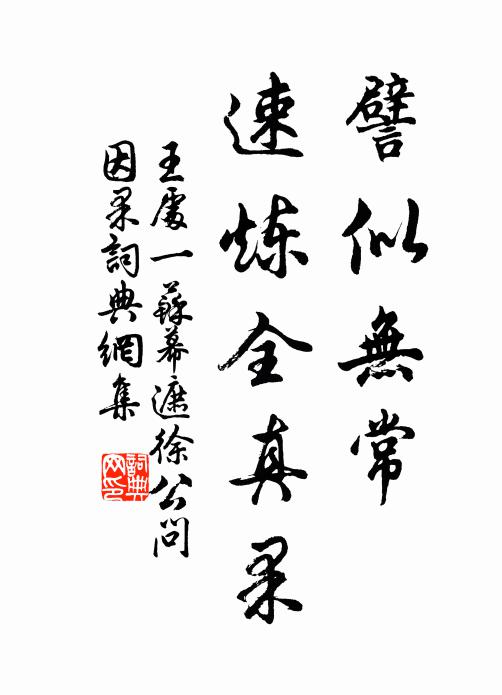 譬似無常
速炼全真果
王處一蘇幕遮徐公問
因果詞典網集
詞典
网印